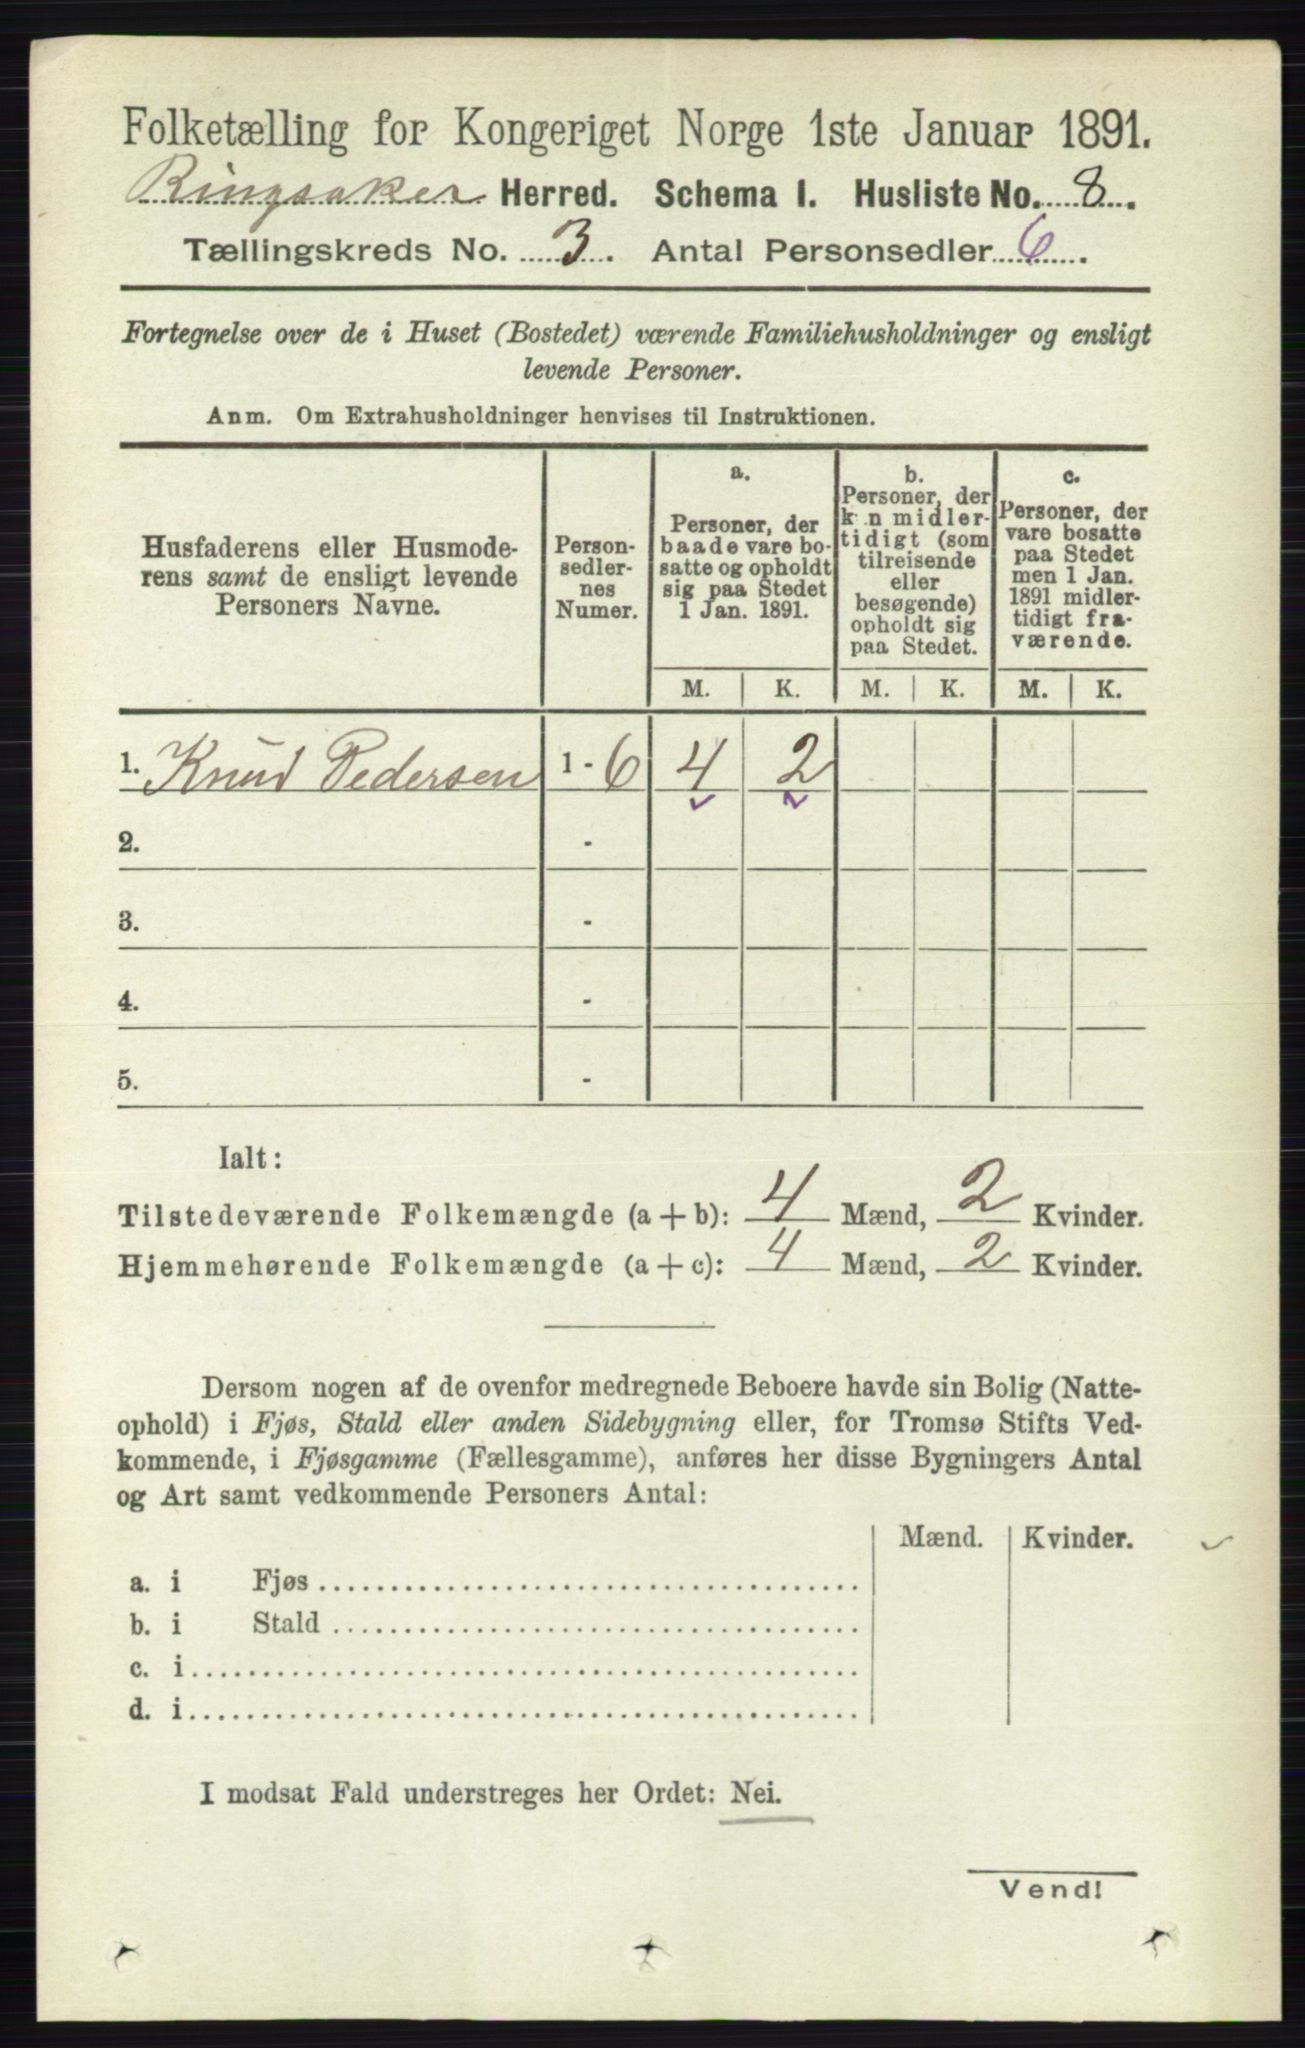 Folketælling for Kongeriget Norge 1ste Januar 1891.
Ringsaker Herred. Schema I. Husliste No. 8.
Tællingskreds No. 3. Antal Personsedler 6.
Fortegnelse over de i Huset (Bostedet) værende Familiehusholdninger og ensligt
levende Personer.
Anm. Om Extrahusholdninger henvises til Instruktionen.
Husfaderens eller Husmode-
rens samt de ensligt levende
Personers Navne.
Person-
sedler-
nes
Numer.
a.
Personer, der
baade vare bo-
satte og opholdt
sig paa Stedet
1 Jan. 1891.
b.
Personer, der
kun midler-
tidigt (som
tilreisende
eller
besøgende)
opholdt sig
paa Stedet.
c.
Personer, der
vare bosatte
paa Stedet
men 1 Jan.
1891 midler-
tidigt fra-
værende.
M. K. M. K. M. K.
1. Knud Pedersen 1 - 6 4 2
2. -
3. -
4. -
5. -
Ialt:
Tilstedeværende Folkemængde (a + b): 4 Mænd, 2 Kvinder.
Hjemmehørende Folkemængde (a + c): 4 Mænd, 2 Kvinder.
Dersom nogen af de ovenfor medregnede Beboere havde sin Bolig (Natte-
ophold) i Fjøs, Stald eller anden Sidebygning eller, for Tromsø Stifts Ved-
kommende, i Fjøsgamme (Fællesgamme), anføres her disse Bygningers Antal
og Art samt vedkommende Personers Antal:
Mænd. Kvinder.
a. i Fjøs
b. i Stald
c. i
d. i
I modsat Fald understreges her Ordet: Nei.
Vend!